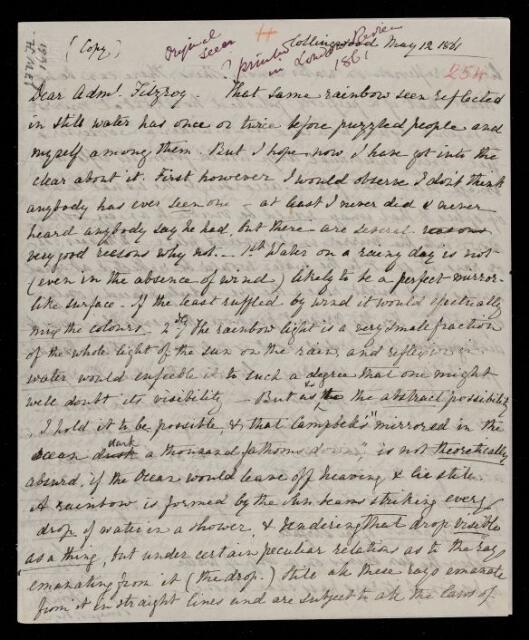 (Copy)
Original seen
? printed in London Review 1861
Collingwood May 12 1861
254
Dear Adml. Fitzroy. That same rainbow seen reflected
in still water has once or twice before puzzled people and
myself among them. But I hope now I have got into the
clear about it. First however I would observe I don't think
anybody has ever seen one - at least I never did & never
heard anybody say he had, but there are several reasons
very good reasons why not. - 1st. Water on a rainy day is not
(even in the absence of wind) likely to be a perfect mirror-
like surface. If the least ruffled by wind it would effectually
mix the colours. 2dly The rainbow light is a very small fraction
of the whole light of the sun on the rain, and reflexion in
water would enfeeble it to such a degree that one might
well doubt its visibility - But as to the abstract possibility
I hold it to be possible, & that Campbell's "mirrored in the
ocean dark a thousand fathoms down" is not theoretically
absurd, if the Ocean would leave off heaving & lie still.
A rainbow is formed by the sun beams striking every
drop of water in a shower, & rendering that drop visible
as a thing, but under certain peculiar relations as to the rays
emanating from it (the drop.) still all these rays emanate
from it in straight lines and are subject to all the laws of